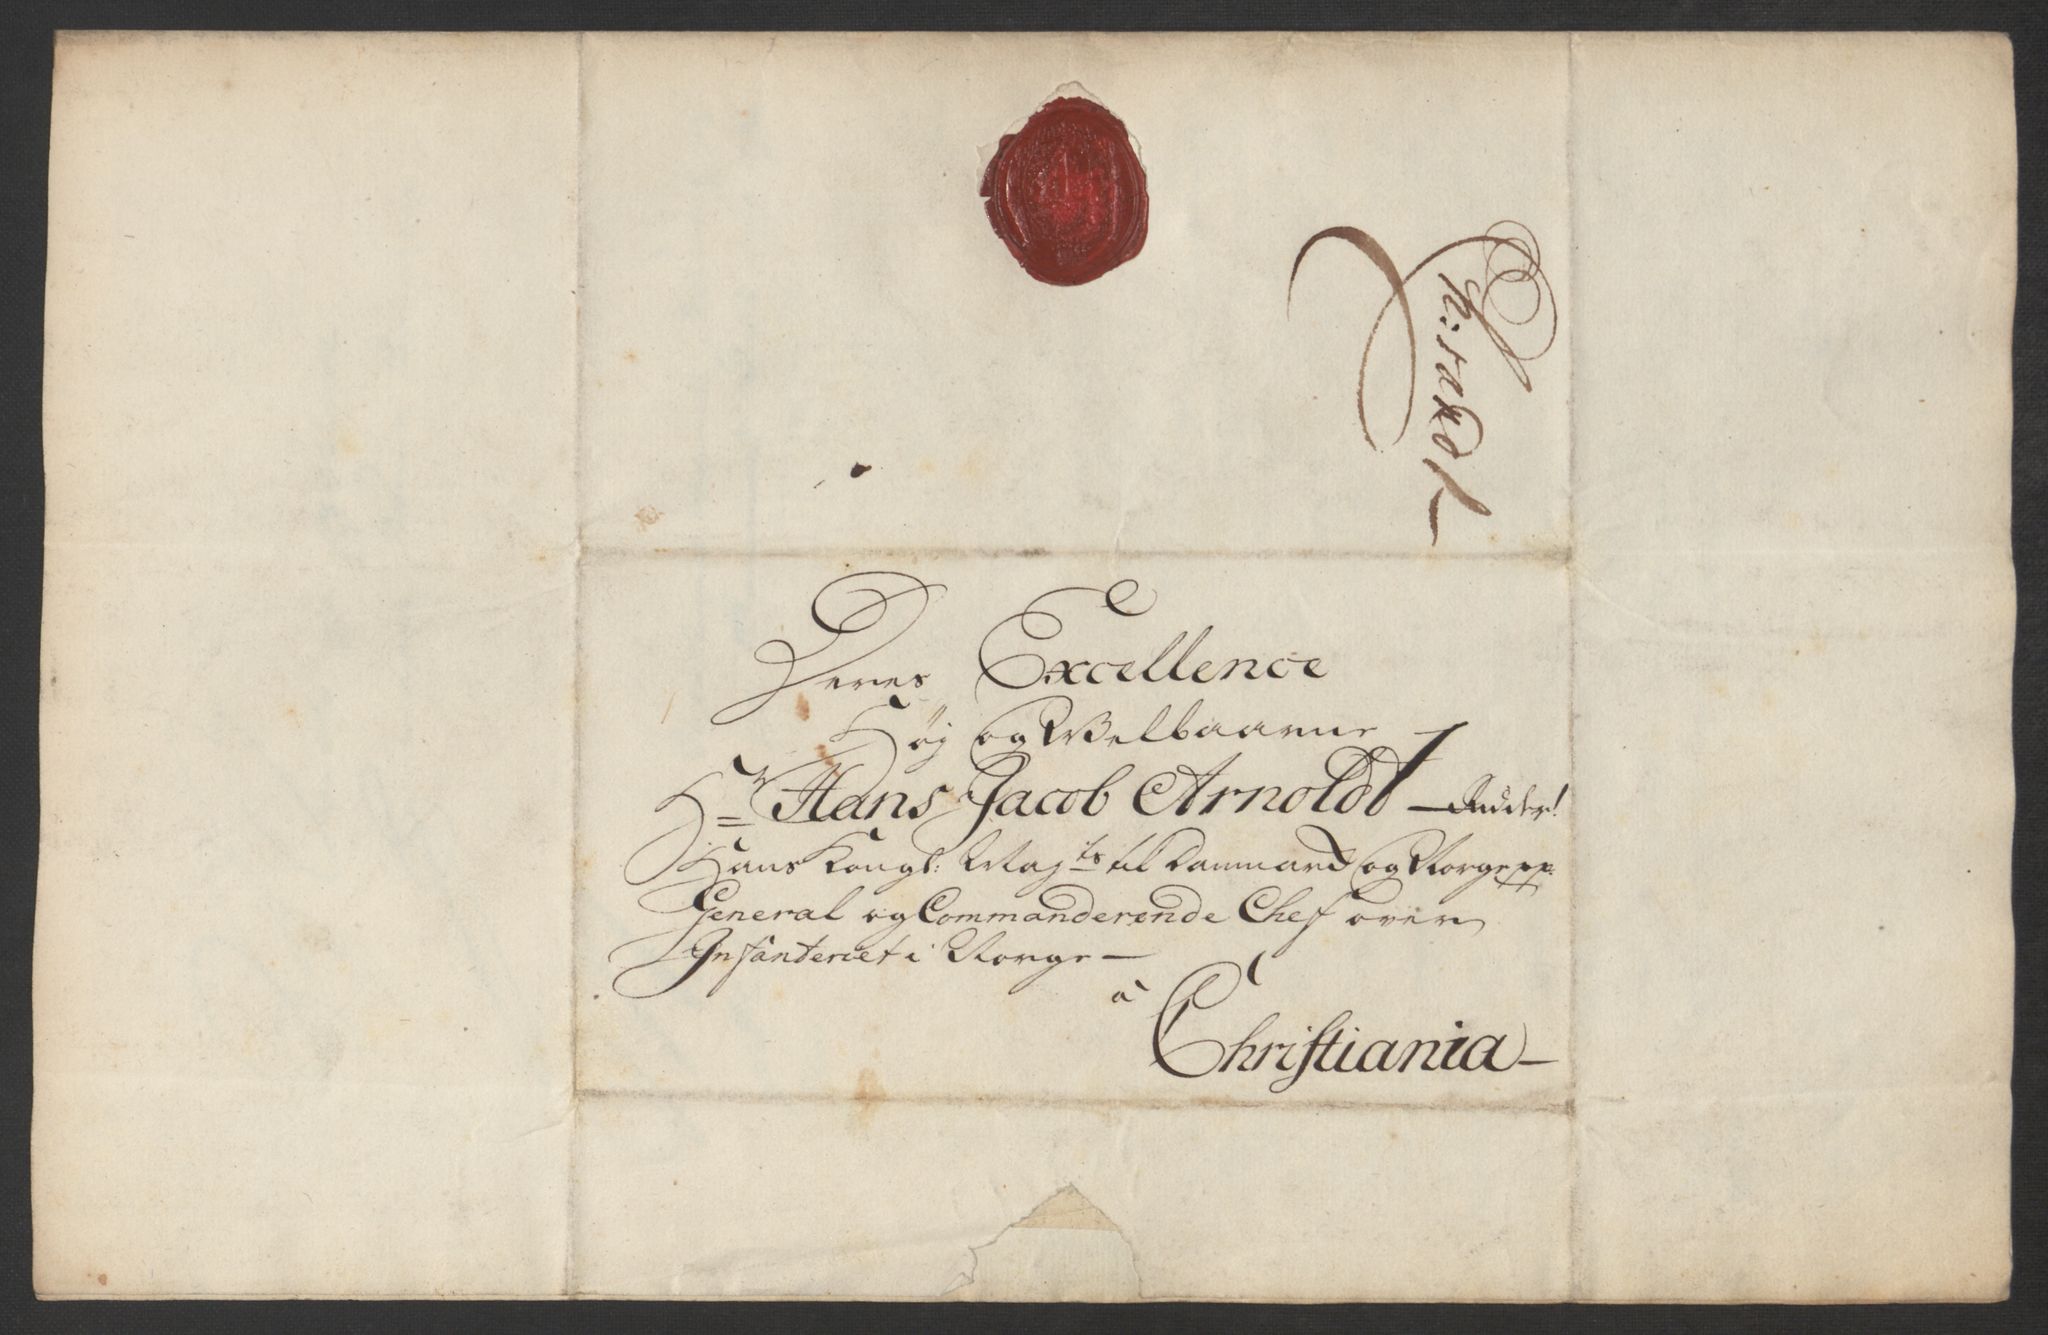 Ch:sand
Deres Excellence
Høj og Welbaarne
Hr Hans Jacob Arnoldt Ridder!
Hans Kongl: Majts til Danmark og Norge pp:
General og Commanderende Chef over
Infanteriet i Norge —
a
Christiania —